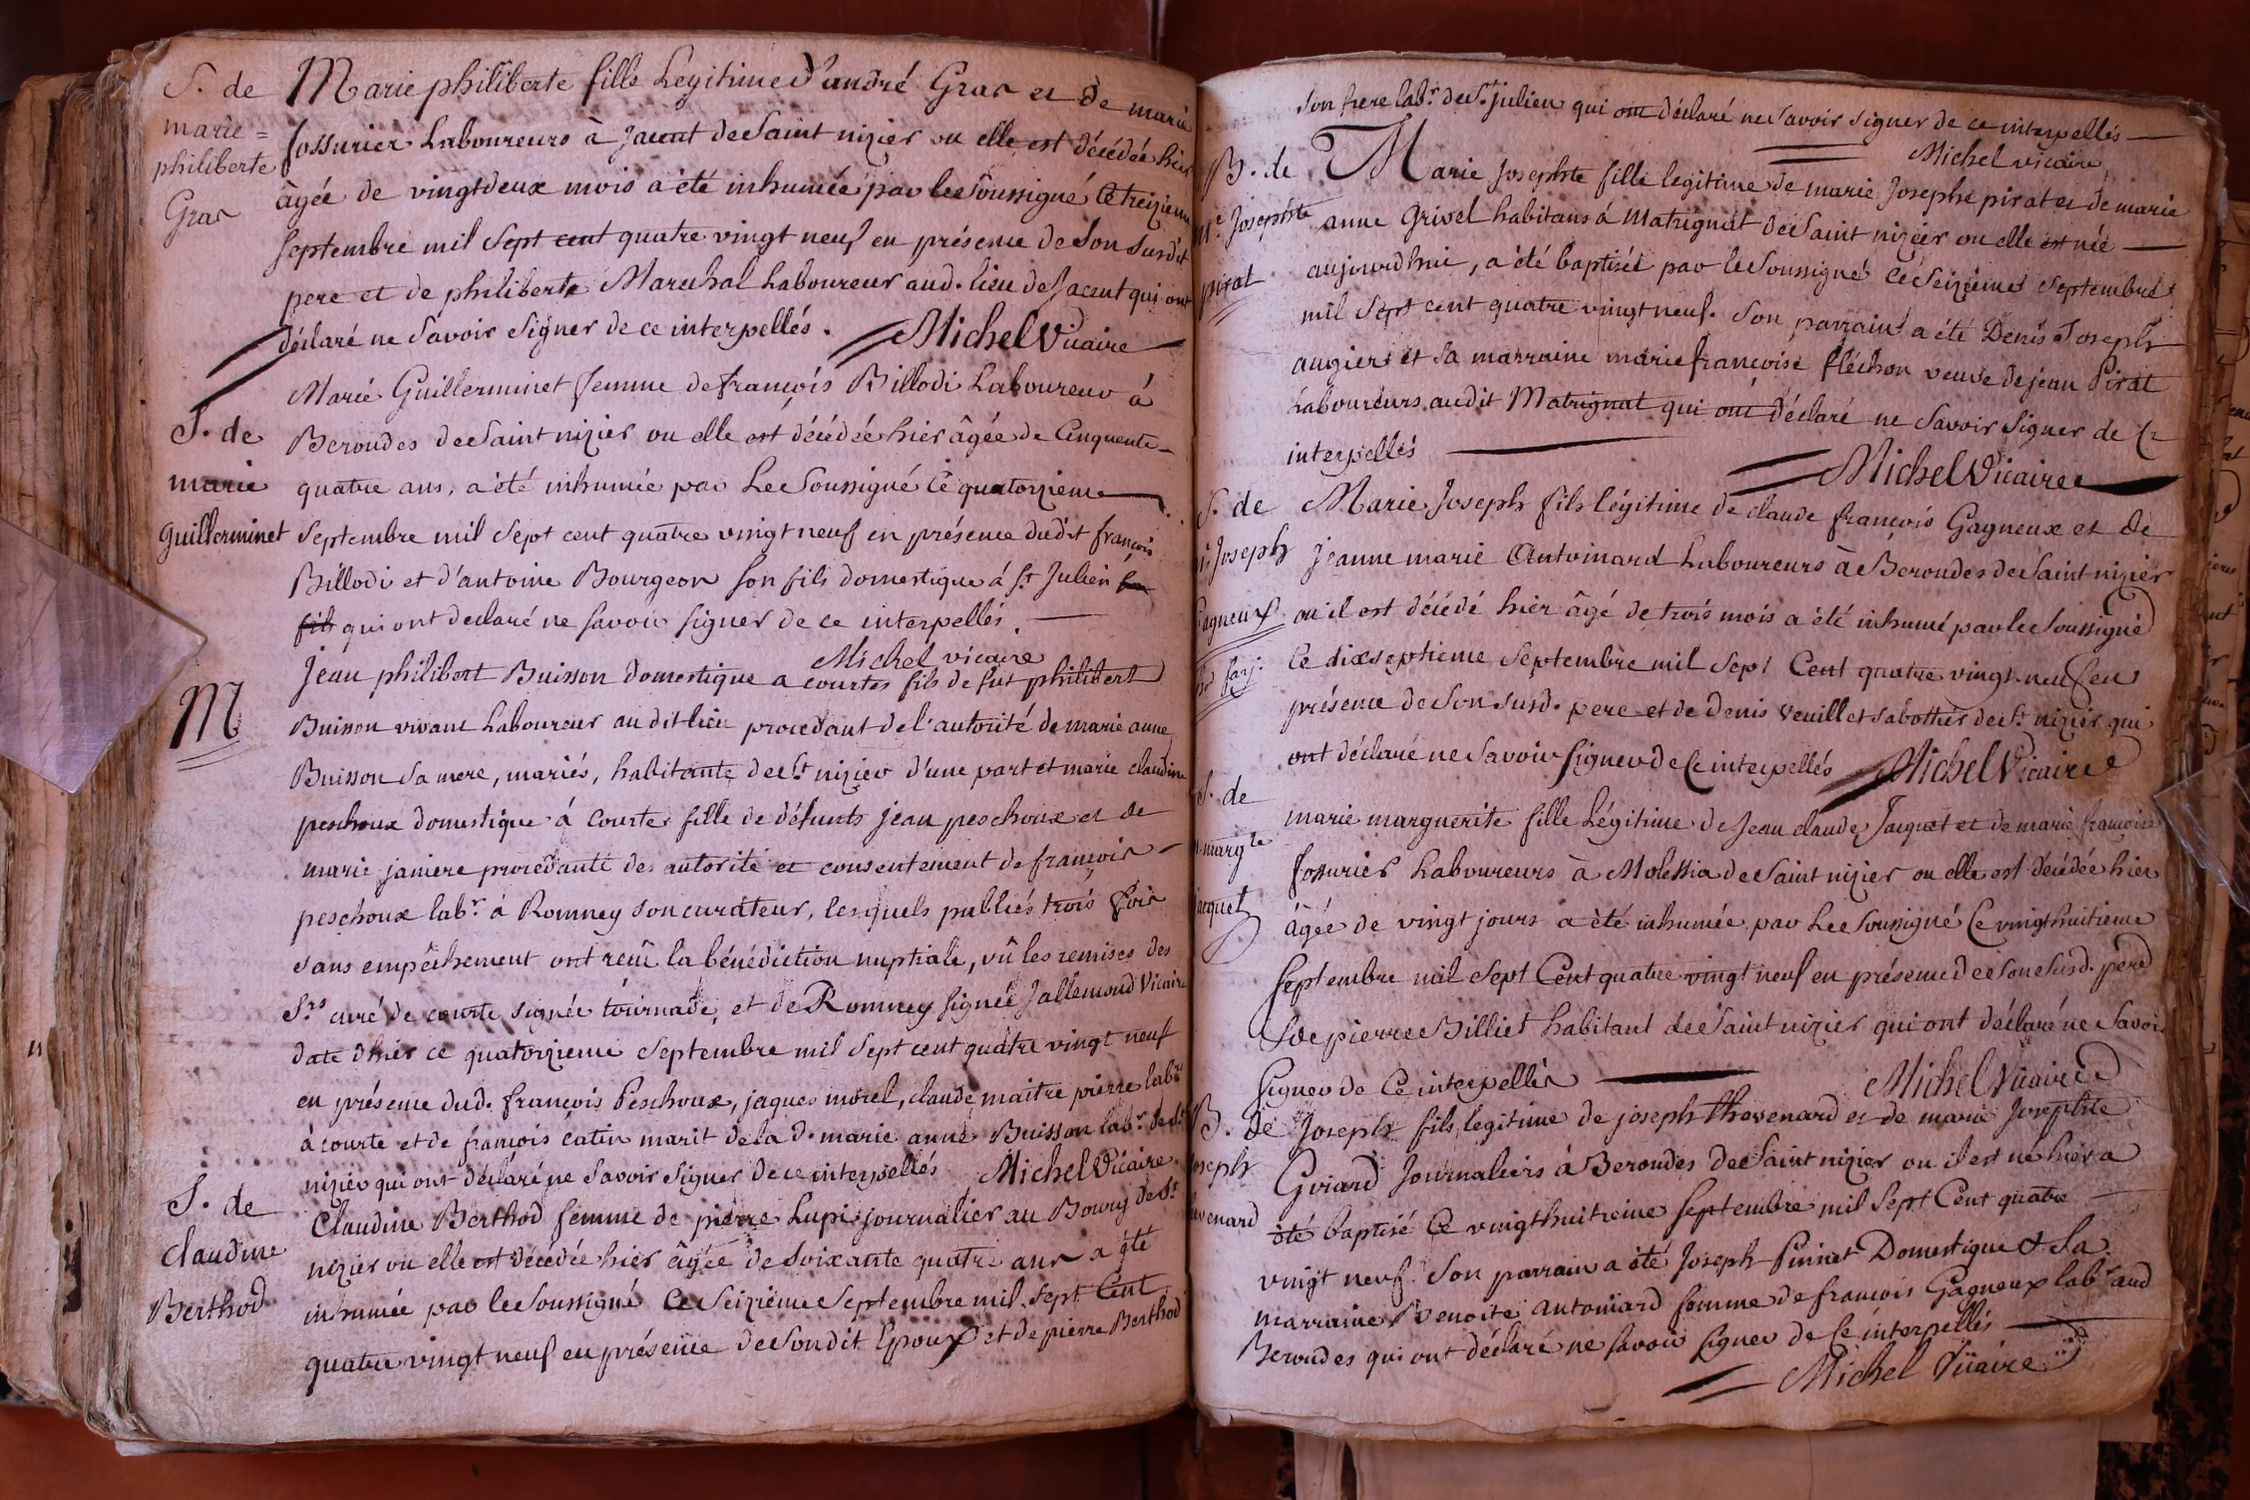 S. de
marie=
philiberte
Gras
Marie philiberte fille Légitime d'andré Gras et de marie
fossurier Laboureurs à Jacent de Saint nizier ou elle est décédée hier
âgée de vingtdeux mois a été inhumée par le Soussigné ce treizieme
septembre mil sept cent quatre vingt neuf en présence de Son Susdit
pere et de philiberte Marechal Laboureur aud. lieu de Jacent qui ont
déclaré ne Savoir Signer de ce interpellés. Michel Vicaire
S. de
marie
guillerminet
Marie Guillerminet femme de françois Billodi Laboureur à
Beroudes de Saint nizier ou elle est décédée hier âgée de Cinquente-
quatre ans, a été inhumée par Le Soussigné ce quatorzieme
Septembre mil Sept cent quatre vingt neuf en présence dudit françois
Billodi et d'antoine Bourgeon son fils domestique à St Julien
fils qui ont declaré ne savoir signer de ce interpellés.
Michel vicaire
M
Jean philibert Buisson domestique a courtes fils de fut philibert
Buisson vivant Laboureur au dit lieu procedant de l'autorité de marie anne
Buisson sa mere, mariés, habitante de St nizier d'une part et marie claudine
peschoux domestique à Courte fille de défunts jean peschoux et de
marie janiere procedante de autorité et consentement de françois
peschoux labr à Romney son curateur, lesquels publiés trois fois
sans empêchement ont reçu la bénédiction nuptiale, vû les remises des
Srs curé de courte signée tournade, et de Romney signée Jallemoud Vicaire
date d'hier ce quatorzieme septembre mil sept cent quatre vingt neuf
en présence dud. françois Peschoux, jaques morel, claude maitre pierre labrs
à courte et de françois catin marit de la d. marie anne Buisson labr de St
nizier qui ont déclaré ne savoir signer de ce interpellés Michel Vicaire
S. de
Claudine
Berthod
Claudine Berthod femme de pierre Lupi journalier au Bourg de St
nizier ou elle est décédée hier âgée de Soixante quatre ans a été
inhumée par le Soussigné ce Seizieme Septembre mil Sept Cent
quatre vingt neuf en présence de Son dit Epoux et de pierre Berthod
son frere labr de St julien qui ont déclaré ne savoir signer de ce interpellés
Michel vicaire
B. de
Me Josephte
pirat
Marie Josephte fille legitime de marie Josephe pirat et de marie
anne Grivel habitans à Matrignat de Saint nizier ou elle est née
aujourdhui, a été baptisée par le Soussigné ce seizieme septembre
mil sept cent quatre vingt neuf. Son parrain a été Denis Joseph
augier et sa marraine marie françoise fléchon veuve de jean Pirat
Laboureurs audit Matrignat qui ont déclaré ne Savoir Signer de Ce
interpellés Michel Vicaire
S. de
Joseph
Gagneux
Marie Joseph fils légitime de claude françois Gagneux et de
Jeanne marie Antoinard Laboureurs à Beroudes de Saint nizier
ou il est décédé hier âgé de trois mois a été inhumé par le Soussigné
Ce dixseptieme Septembre mil Sept Cent quatre vingt neuf en
présence de Son susd. pere et de Denis veuillet sabottier de St nizier qui
ont déclaré ne Savoir Signer de Ce interpellés Michel Vicaire
S. de
margte
jacquet
marie marguerite fille Légitime de Jean claude Jacquet et de marie françoise
fossurier Laboureurs à Molessia de Saint nizier ou elle est décédée hier
âgée de vingt jours a été inhumée par Le Soussigné Ce vingthuitieme
Septembre mil Sept Cent quatre vingt neuf en présence de Son Susd. pere
& de pierre Billiet habitant de Saint nizier qui ont déclaré ne Savoir
Signer de Ce interpellés Michel Vicaire
B. de
Joseph
thevenard
Joseph fils legitime de joseph thevenard et de marie Josephte
Guiard Journaliers à Beroudes de Saint nizier ou il est né hier a
été baptisé Ce vingthuitieme septembre mil Sept Cent quatre
vingt neuf. Son parrain a été Joseph Puinet Domestique & Sa
marraine Benoite antoniard femme de francois Gagneux labr aud
Beroudes qui ont déclaré ne savoir signer de Ce interpellés
Michel Vicaire